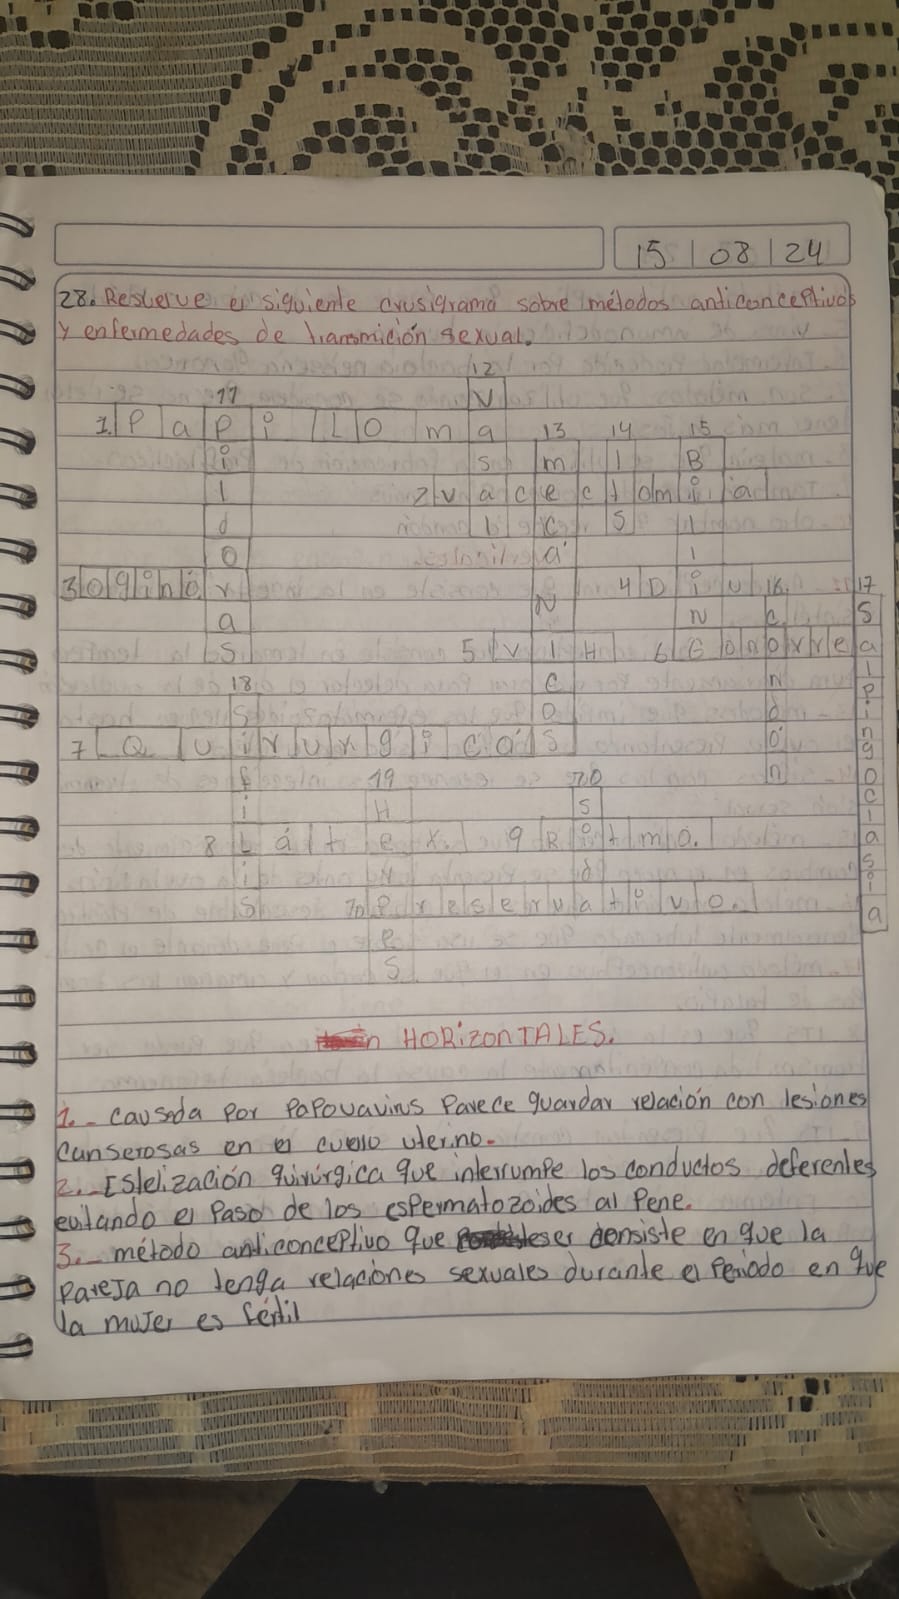 15 | 08 | 24
28. Reslerve el siguiente crusigrama sobre métodos anticonceptivos
y enfermedades de transmición sexual.
12
11 V
1. P a p i L O m a 13 14 15
i s m I B
l 2 v a c e c t o m i a
d b c S l
o a i
3 o g i n o r 4 D i U 16 17
a N N c S
S 5 V I H 6 G o n o r r e a
18 c n l
S o d p
7 Q u i r u r g i c a S ó i
f 19 20 n n
i H S g
8 L á t e x. 9 R i t m o.
i d
S 10 P r e s e r v a t i v o.
e
S
HORizonTALES.
1.- Causada por Papovavirus Parece guardar relación con lesiones
Canserosas en el cuello uterino.
2.- Estelización quirúrgica que interrumpe los conductos deferentes
evitando el Paso de los espermatozoides al Pene.
3.- método anticonceptivo que consiste en que la
Pareja no tenga relaciones sexuales durante el Periodo en que
la mujer es fértil